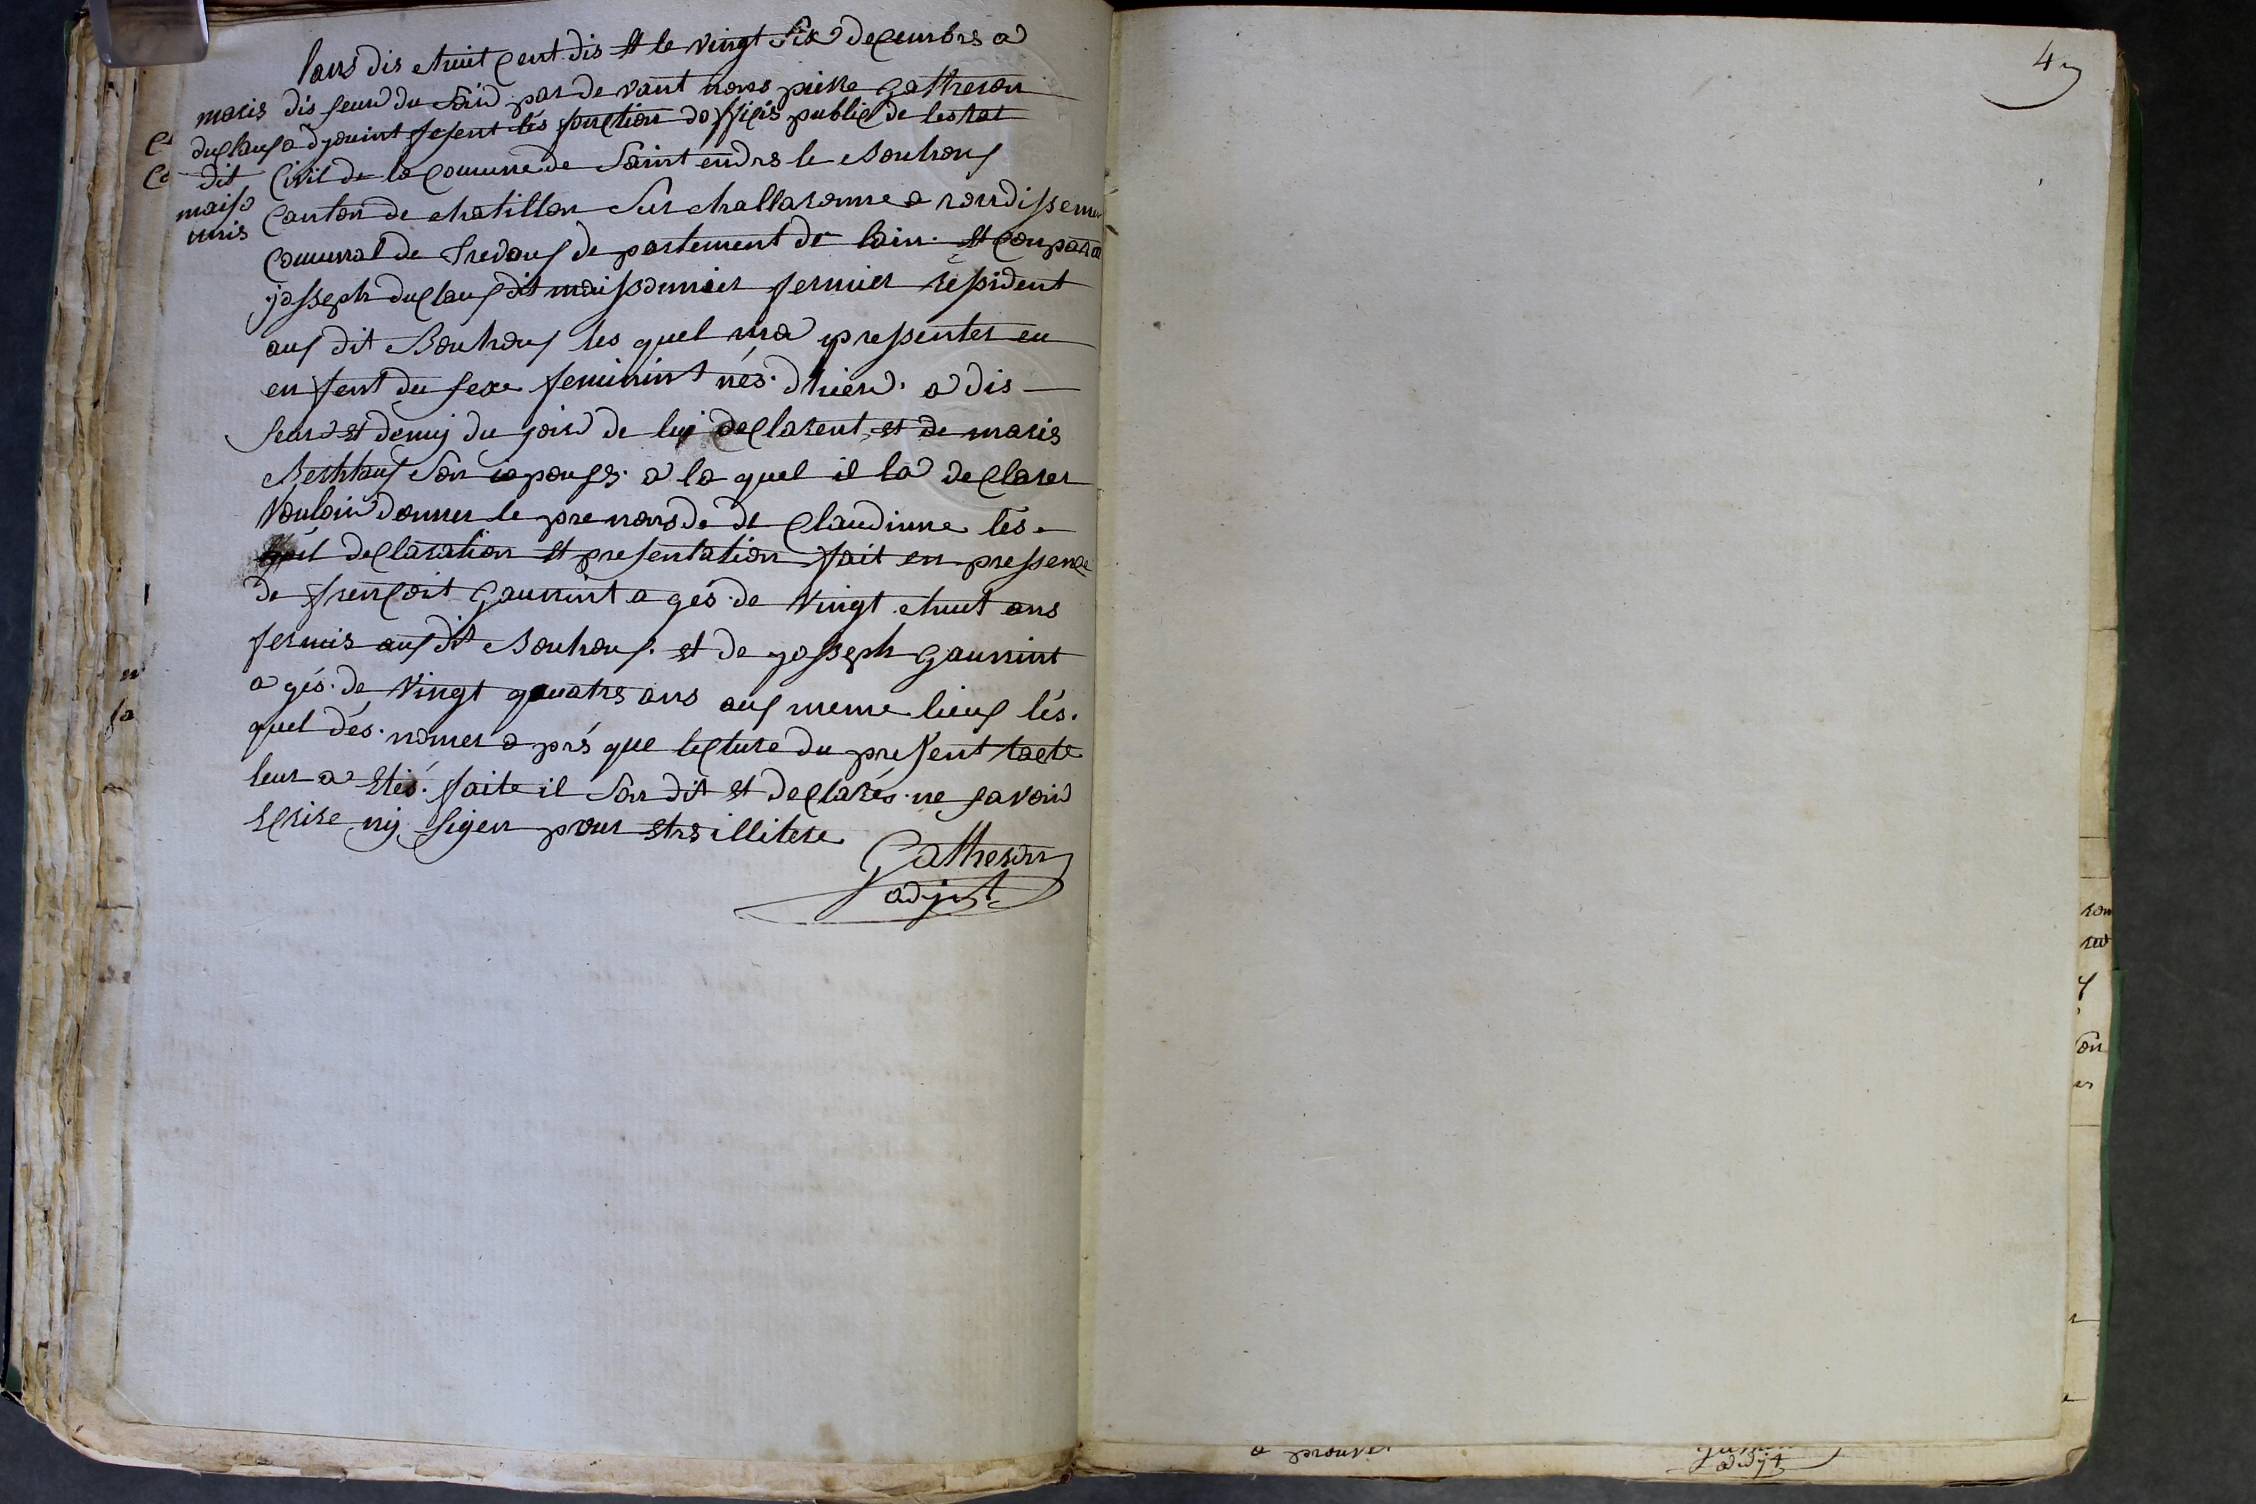 lans dis ehuit cent dis et le vingt six decembrs a
maris
duclauf
dit
maiso
unis
dis seurd du soird par de vant nous pierre gatheron
adjouint fesent lés fonction dofficis public de lestat
civil de la comune de Saint endrs le Bouhouf
canton de chatillon sur challaronne a rondisseme
comunal de trevouf de partement de lain. et conpara
josseph duclauf dit maissonnier fermier ressident
auf dit Bouhouf les quel ma pressenter eu
en fent du sexe feminint nés. dhierd. a dis
seurd et demij du joird de luj declarent et de maris
Berthauf son epousse. a la quel il la declarer
vouloird donner le prenons de de claudinne lés
quel declaration et presentation fait en pressence
de frencoit gaunint a gés. de vingt ehuit ans
fermis auf dit Bouhouf. et de josseph gaunint
a gés. de vingt quatrs ans auf meme lieuf lés.
quel dés. nomer a prés que lecture du present lacte
leur a etés. faite il son dit et declarés. ne savoird
ecrire nij sigen pour etrs illitere
Gatheron
adjt
4
a prouver
adjt